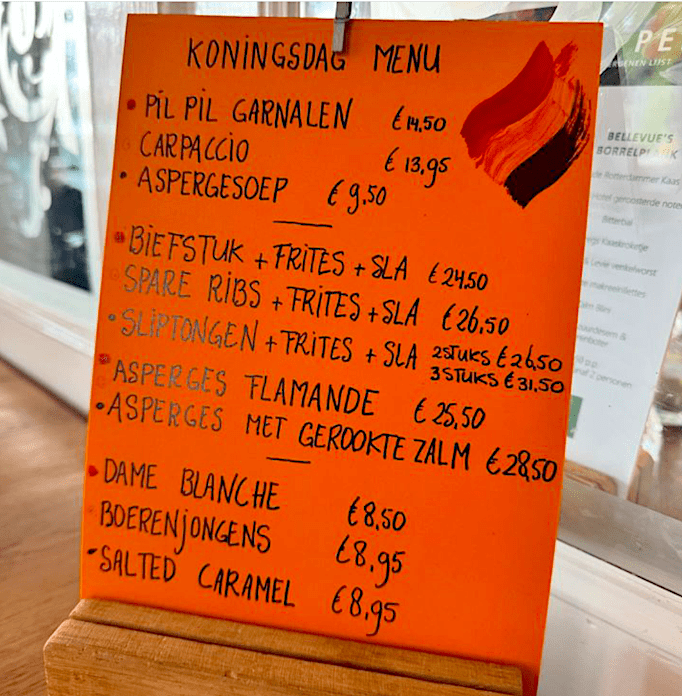 KONINGSDAG MENU
• PIL PIL GARNALEN €14,50
CARPACCIO €13,95
• ASPERGESOEP €9,50
• BIEFSTUK + FRITES + SLA €24,50
SPARE RIBS + FRITES + SLA €26,50
• SLIPTONGEN + FRITES + SLA 2 STUKS €26,50
3 STUKS €31,50
• ASPERGES FLAMANDE €25,50
• ASPERGES MET GEROOKTE ZALM €28,50
• DAME BLANCHE €8,50
BOERENJONGENS €8,95
• SALTED CARAMEL €8,95
PE
BELLEVUE'S
BORRELPLANK
Rotterdammer Kaas
geroosterde noten
Bitterbal
Kaaskroketje
& Levie venkelworst
makreelrillettes
2 personen